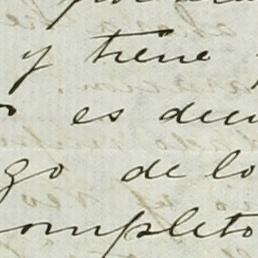 y tiene
es deci
go de lo
ompleto